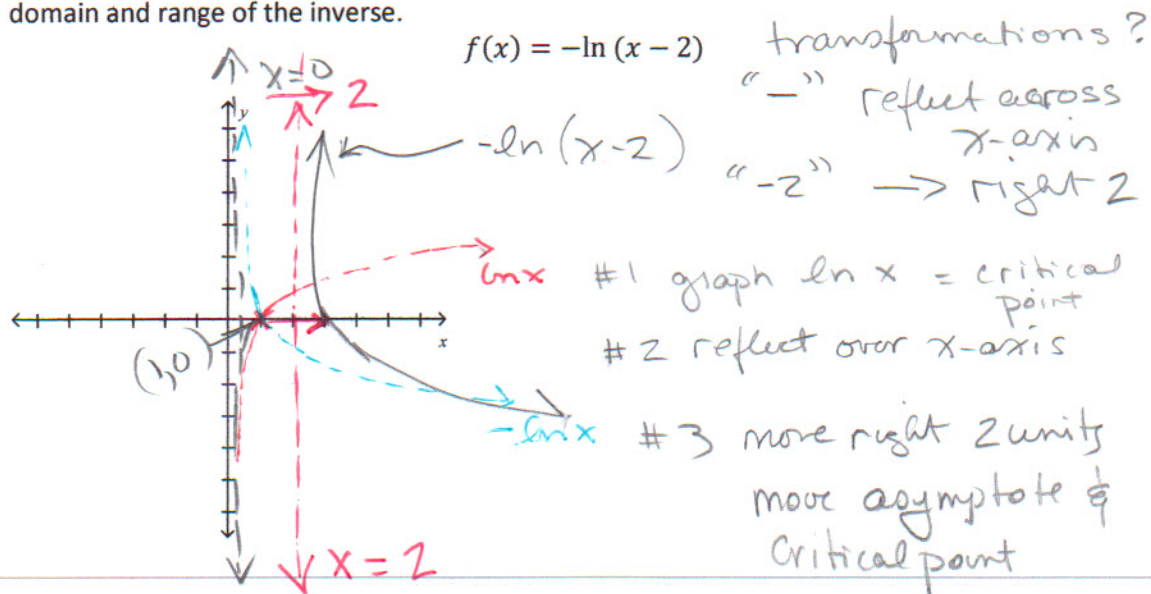 domain and range of the inverse.
f(x) = −ln (x − 2)
transformations?
"—" reflect across
x-axis
"-2" → right 2
x=0
2
y
-ln(x-2)
ln x
x
(1,0)
-ln x
x = 2
#1 graph ln x = critical
point
#2 reflect over x-axis
#3 move right 2 units
move asymptote &
Critical point